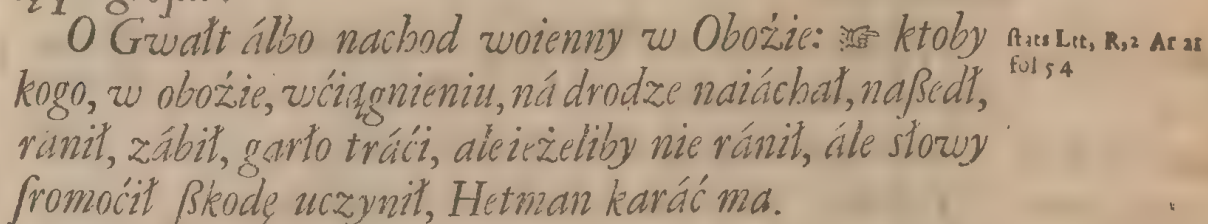 O Gwałt álbo nachod woienny w Obożie: ☞ ktoby
kogo, w obożie, wćiągnieniu, ná drodze naiáchał, naßedł,
ránił, zábił, garło tráći, ale ieżeliby nie ránił, ále słowy
ſromoćił ßkodę uczynił, Hetman karáć ma.
ſtats Lit, R,2 Ar 21
fol 54